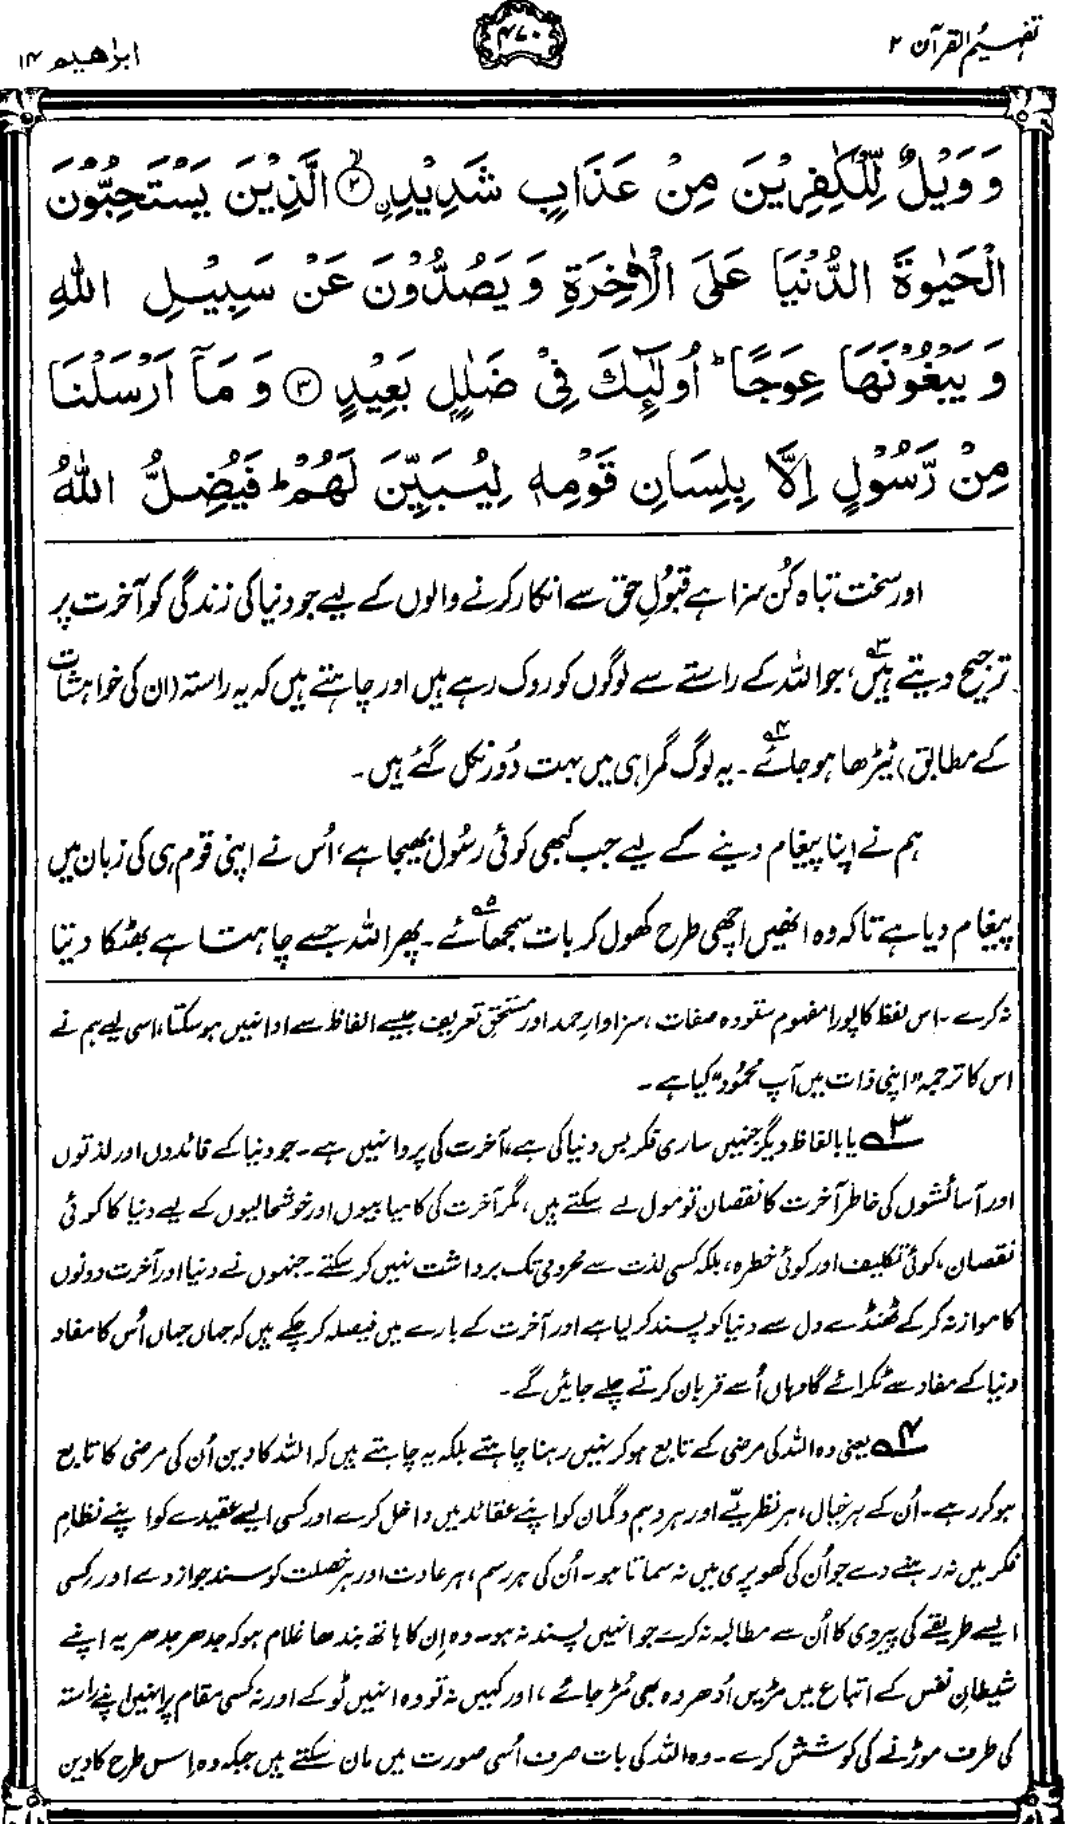 تفہیم القرآن ۲
۴۷۰
ابراھیم ۱۴
وَوَيْلٌ لِّلْكٰفِرِيْنَ مِنْ عَذَابٍ شَدِيْدِۙ ۝۲ الَّذِيْنَ يَسْتَحِبُّوْنَ
الْحَيٰوةَ الدُّنْيَا عَلَى الْاٰخِرَةِ وَ يَصُدُّوْنَ عَنْ سَبِيْلِ اللّٰهِ
وَ يَبْغُوْنَهَا عِوَجًا ؕ اُولٰٓئِكَ فِيْ ضَلٰلٍۢ بَعِيْدٍ ۝۳ وَ مَآ اَرْسَلْنَا
مِنْ رَّسُوْلٍ اِلَّا بِلِسَانِ قَوْمِهٖ لِيُبَيِّنَ لَهُمْ ؕ فَيُضِلُّ اللّٰهُ
اور سخت تباہ کُن سزا ہے قبُولِ حق سے انکار کرنے والوں کے لیے جو دنیا کی زندگی کو آخرت پر
ترجیح دیتے ہیں۳، جو اللہ کے راستے سے لوگوں کو روک رہے ہیں اور چاہتے ہیں کہ یہ راستہ (ان کی خواہشات
کے مطابق) ٹیڑھا ہو جائے۴۔ یہ لوگ گمراہی میں بہت دُور نکل گئے ہیں۔
ہم نے اپنا پیغام دینے کے لیے جب کبھی کوئی رسُول بھیجا ہے، اُس نے اپنی قوم ہی کی زبان میں
پیغام دیا ہے تاکہ وہ انھیں اچھی طرح کھول کر بات سمجھائے۵۔ پھر اللہ جسے چاہتا ہے بھٹکا دیتا
نہ کرے۔ اس لفظ کا پورا مفہوم ستودہ صفات، سزاوارِ حمد اور مستحقِ تعریف جیسے الفاظ سے ادا نہیں ہو سکتا، اسی لیے ہم نے
اس کا ترجمہ "اپنی ذات میں آپ محمُود" کیا ہے۔
۳ یا بالفاظ دیگر جنہیں ساری فکر بس دنیا کی ہے، آخرت کی پروا نہیں ہے۔ جو دنیا کے فائدوں اور لذتوں
اور آسائشوں کی خاطر آخرت کا نقصان تو مول لے سکتے ہیں، مگر آخرت کی کامیابیوں اور خوشحالیوں کے لیے دنیا کا کوئی
نقصان، کوئی تکلیف اور کوئی خطرہ، بلکہ کسی لذت سے محرومی تک برداشت نہیں کر سکتے۔ جنہوں نے دنیا اور آخرت دونوں
کا موازنہ کر کے ٹھنڈے دل سے دنیا کو پسند کر لیا ہے اور آخرت کے بارے میں فیصلہ کر چکے ہیں کہ جہاں جہاں اُس کا مفاد
دنیا کے مفاد سے ٹکرائے گا وہاں اُسے قربان کرتے چلے جائیں گے۔
۴ یعنی وہ اللہ کی مرضی کے تابع ہو کر نہیں رہنا چاہتے بلکہ یہ چاہتے ہیں کہ اللہ کا دین اُن کی مرضی کا تابع
ہو کر رہے۔ اُن کے ہر خیال، ہر نظریّے اور ہر وہم و گمان کو اپنے عقائد میں داخل کرے اور کسی ایسے عقیدے کو اپنے نظامِ
فکر میں نہ رہنے دے جو اُن کی کھوپری میں نہ سماتا ہو۔ اُن کی ہر رسم، ہر عادت اور ہر خصلت کو سندِ جواز دے اور کسی
ایسے طریقے کی پیروی کا اُن سے مطالبہ نہ کرے جو انہیں پسند نہ ہو۔ وہ اِن کا ہاتھ بندھا غلام ہو کہ جدھر جدھر یہ اپنے
شیطانِ نفس کے اتباع میں مڑیں اُدھر وہ بھی مُڑ جائے، اور کہیں نہ تو وہ انہیں ٹوکے اور نہ کسی مقام پر انہیں اپنے راستہ
کی طرف موڑنے کی کوشش کرے۔ وہ اللہ کی بات صرف اُسی صورت میں مان سکتے ہیں جبکہ وہ اِس طرح کا دین